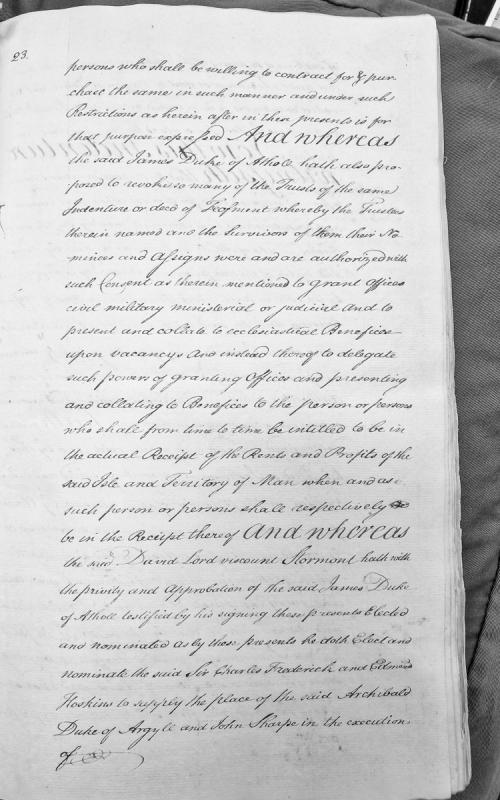 23.
persons who shall be willing to contract for & pur-
chase the same in such manner and under such
Restrictions as herein after in these presents is for
that purpose expressed And whereas
the said James Duke of Atholl hath also pro-
posed to revoke so many of the Trusts of the same
Indenture or deed of Feofment whereby the Trustees
therein named and the Survivors of them their No-
minees and Assigns were and are authorized with
such Consent as therein mentioned to grant Offices
civil military ministerial or judicial and to
present and collate to ecclesiastical Benefices
upon vacancys and instead thereof to delegate
such powers of granting Offices and presenting
and collating to Benefices to the person or persons
who shall from time to time be intitled to be in
the actual Receipt of the Rents and Profits of the
said Isle and Territory of Man when and as
such person or persons shall respectively
be in the Receipt thereof And whereas
the said David Lord viscount Stormont hath with
the privity and Approbation of the said James Duke
of Atholl testified by his signing these presents Elected
and nominated as by these presents he doth Elect and
nominate the said Sir Charles Frederick and Edmond
Hoskins to supply the place of the said Archibald
Duke of Argyle and John Sharpe in the execution
of